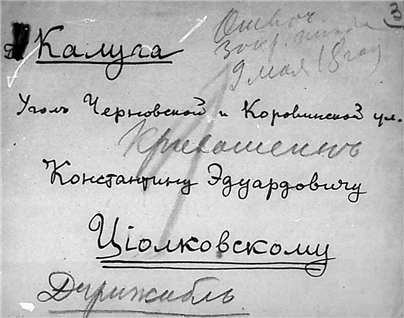 3
Калуга
9 мая
Уголъ Черновской и Коровинской ул.
Константину Эдуардовичу
Ціолковскому
Дирижабль.